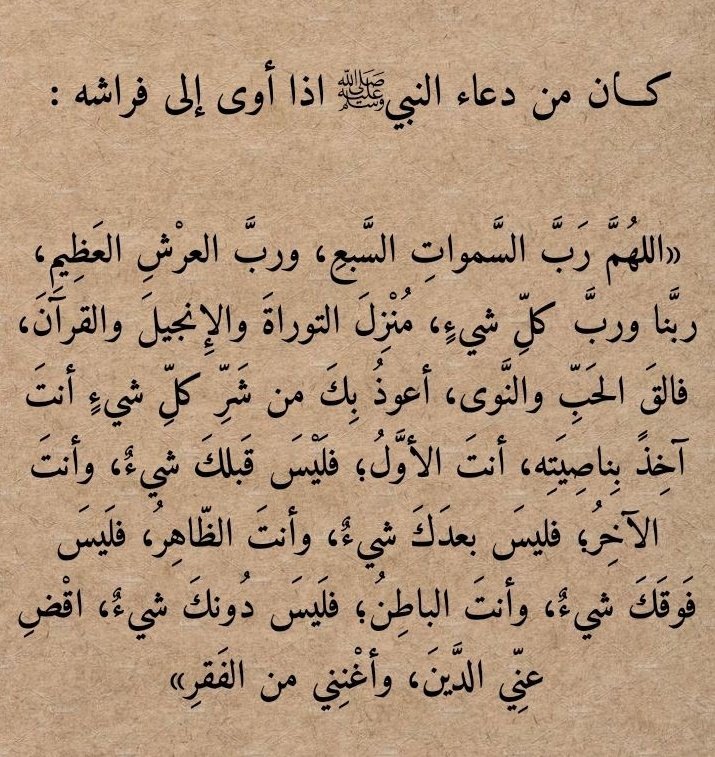 كـــان من دعاء النبيﷺ اذا أوى إلى فراشه :
«اللهُمَّ رَبَّ السَّمواتِ السَّبعِ، وربَّ العرْشِ العَظِيمِ،
ربَّنا وربَّ كلِّ شيءٍ، مُنْزِلَ التوراةَ والإِنجيلَ والقرآنَ،
فالقَ الحَبِّ والنَّوى، أعوذُ بِكَ من شَرِّ كلِّ شيءٍ أنتَ
آخِذً بِناصِيَتِه، أنتَ الأوَّلُ؛ فلَيْسَ قَبلكَ شيءٌ، وأنتَ
الآخِرُ؛ فليسَ بعدَكَ شيءٌ، وأنتَ الظّاهِرُ، فلَيسَ
فَوقَكَ شيءٌ، وأنتَ الباطِنُ؛ فلَيسَ دُونكَ شيءٌ، اقْضِ
عنِّي الدَّينَ، وأغْنِني من الفَقرِ»